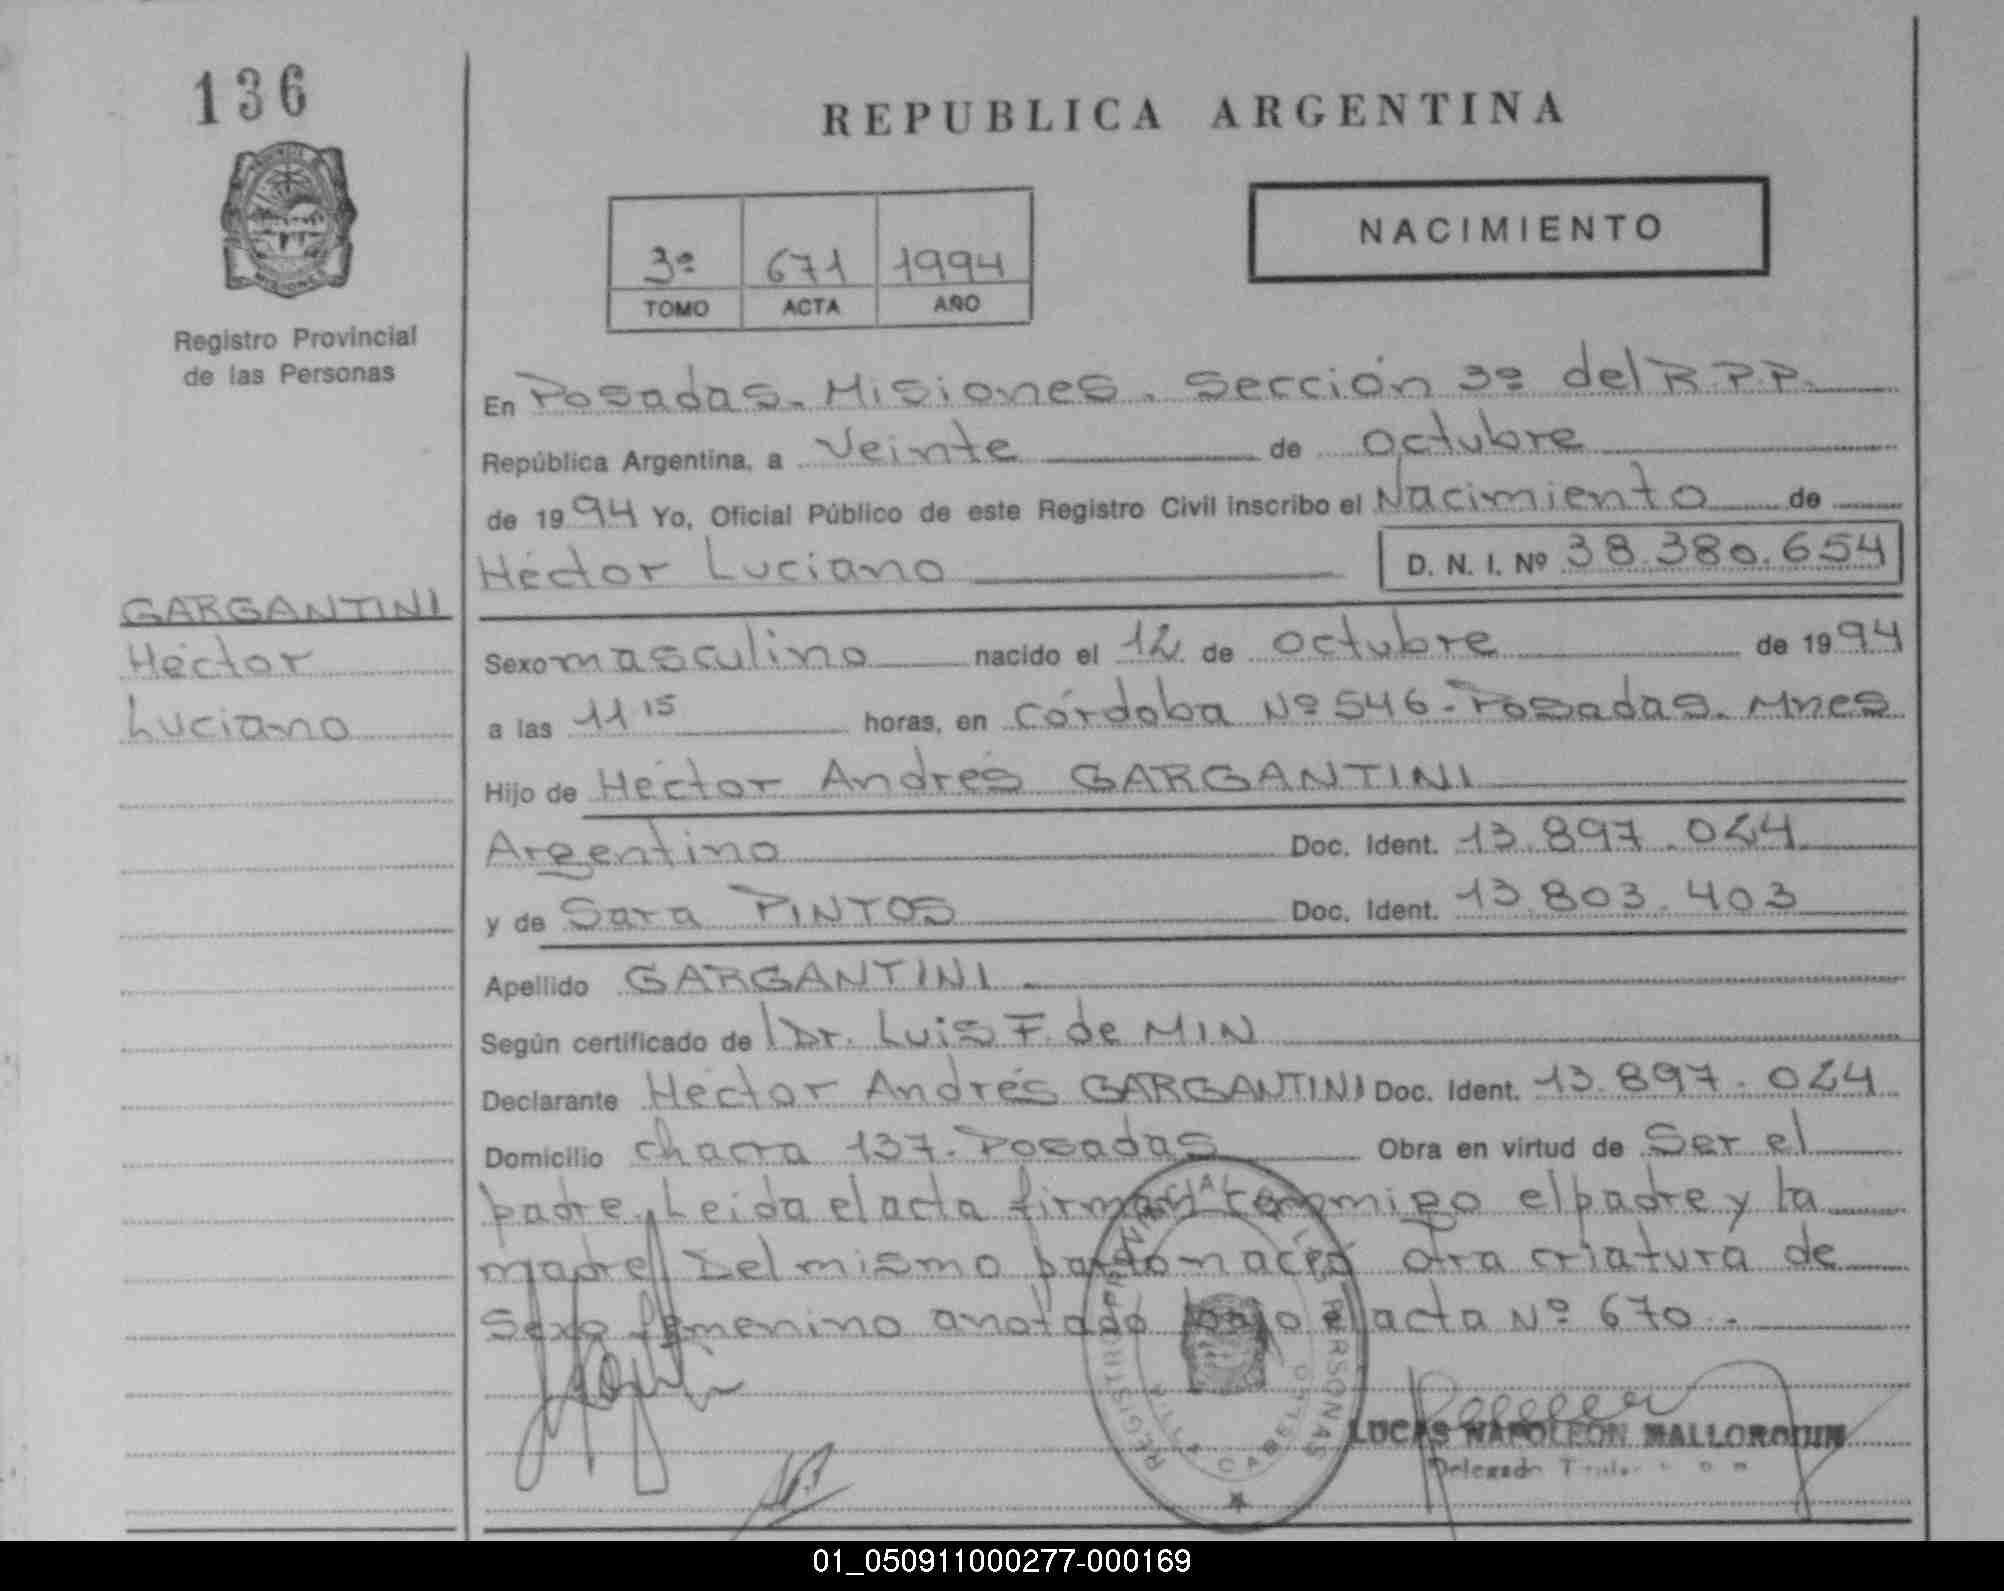 136
REPUBLICA ARGENTINA
NACIMIENTO
3º 671 1994
TOMO ACTA AÑO
Registro Provincial
de las Personas
En Posadas. Misiones. Sección 3º del R.P.P.
República Argentina, a Veinte de octubre
de 1994 Yo, Oficial Público de este Registro Civil inscribo el Nacimiento de
Héctor Luciano D. N. I. Nº 38.380.654
GARGANTINI
Héctor
Luciano
Sexo masculino nacido el 12 de octubre de 1994
a las 11 15 horas, en Córdoba Nº 546. Posadas. Mnes
Hijo de Héctor Andrés GARGANTINI
Argentino Doc. Ident. 13.897.024
y de Sara PINTOS Doc. Ident. 13.803.403
Apellido GARGANTINI
Según certificado de Dr. Luis F. de MIN
Declarante Héctor Andrés GARGANTINI Doc. Ident. 13.897.024
Domicilio chacra 137. Posadas Obra en virtud de Ser el
padre. Leida el acta firman conmigo el padre y la
madre Del mismo parto nació otra criatura de
Sexo femenino anotado bajo el acta Nº 670.
REGISTRO PROVINCIAL DE LAS PERSONAS
LUCAS NAPOLEON MALLORQUIN
Delegado Titular
01_050911000277-000169